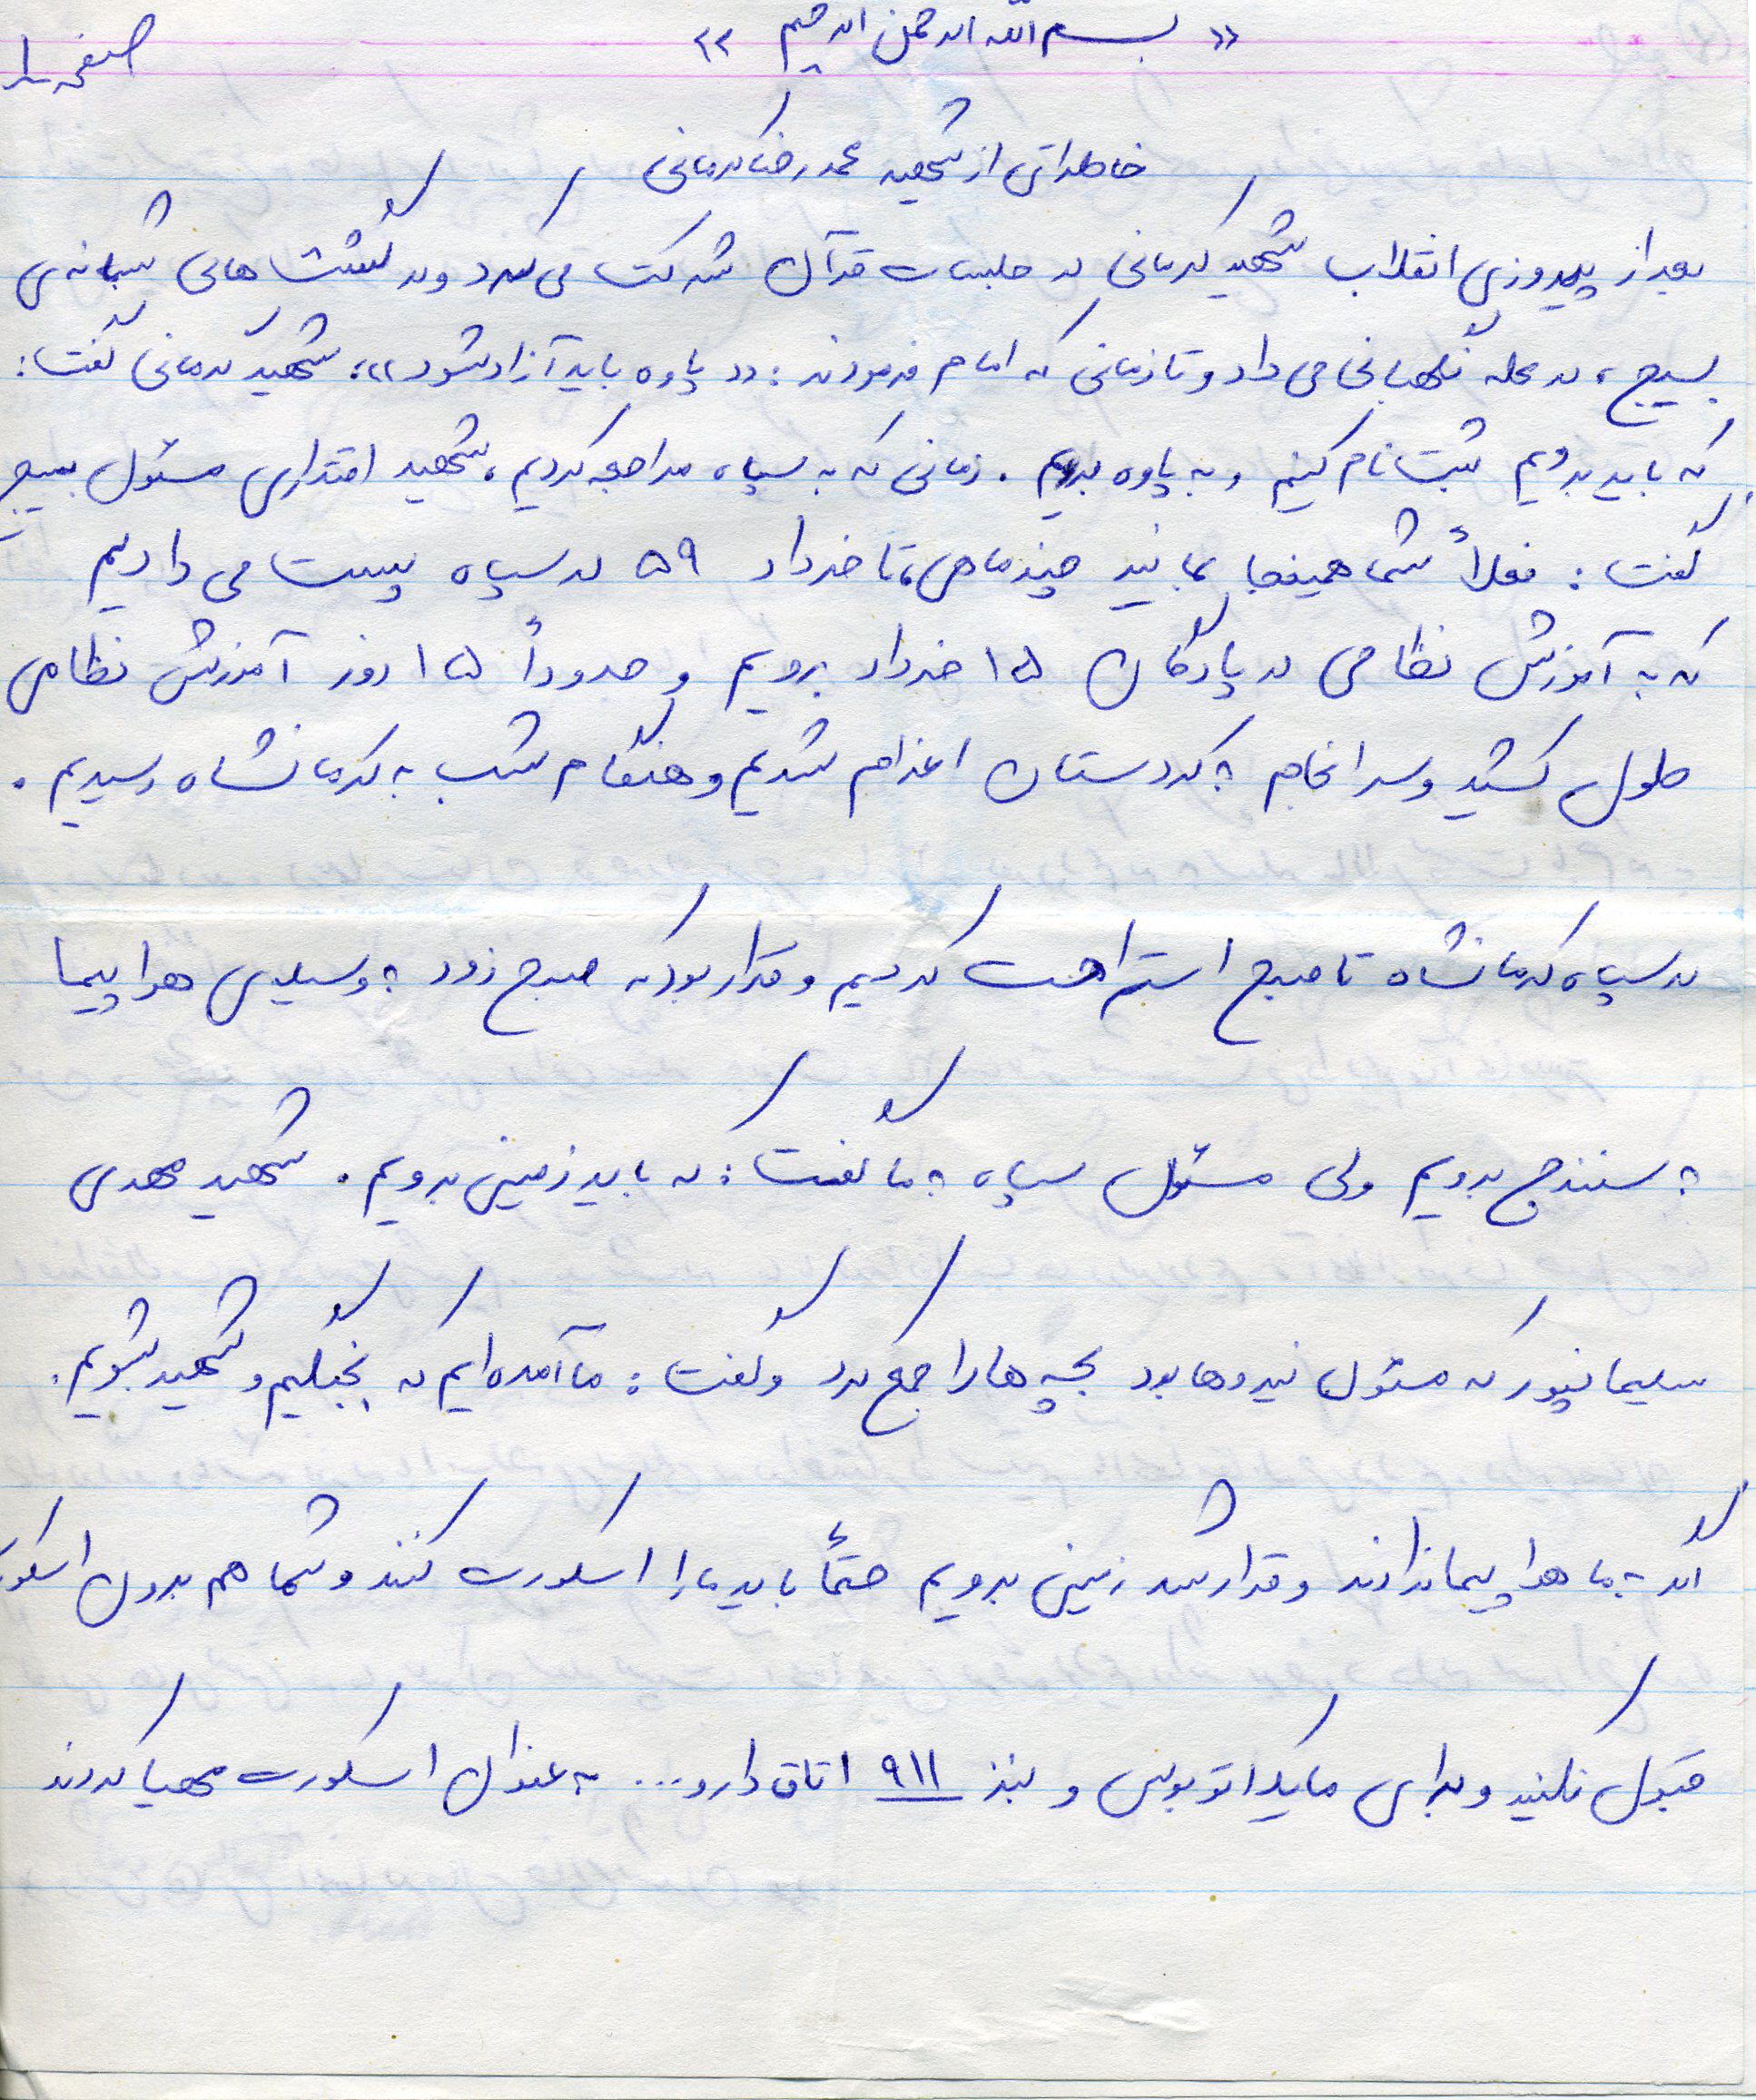 « بسم الله الرحمن الرحیم »
صفحه ۱
خاطراتی از شهید محمدرضا کرمانی
بعد از پیروزی انقلاب شهید کرمانی در جلسات قرآن شرکت می‌کرد و در گشت‌های شبانه‌ی
بسیج، در محله نگهبانی می‌داد و تا زمانی که امام فرمودند: «پاوه باید آزاد شود»، شهید کرمانی گفت:
که باید برویم ثبت نام کنیم و به پاوه برویم. زمانی که به سپاه مراجعه کردیم، شهید اقتداری مسئول بسیج
گفت: فعلاً شما همینجا بمانید چند ماهی، تا خرداد ۵۹ در سپاه پست می‌دادیم
که به آموزش نظامی در پادگان ۱۵ خرداد برویم و حدوداً ۱۵ روز آموزش نظامی
طول کشید و سرانجام به کردستان اعزام شدیم و هنگام شب به کرمانشاه رسیدیم.
در سپاه کرمانشاه تا صبح استراحت کردیم و قرار بود که صبح زود به وسیله‌ی هواپیما
به سنندج برویم ولی مسئول سپاه به ما گفت: که باید زمینی برویم. شهید مهدی
سلیمانپور که مسئول نیروها بود بچه‌ها را جمع کرد و گفت: ما آمده‌ایم که بجنگیم و شهید بشویم.
اگر به ما هواپیما ندادند و قرار شد زمینی برویم حتماً باید ما را اسکورت کنند و شما هم بدون اسکورت
قبول نکنید و برای ما یک اتوبوس و بنز ۹۱۱ اتاق دارو... به عنوان اسکورت مهیا کردند